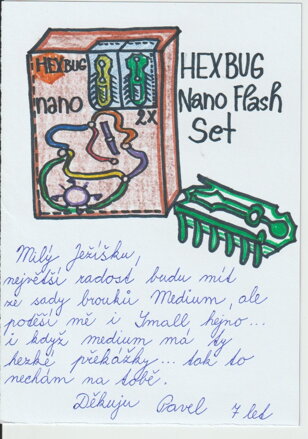 HEXBUG
nano
2x
HEXBUG
Nano Flash
Set
Milý Ježíšku,
největší radost budu mít
ze sady broučků Medium, ale
potěší mě i Small hejno...
i když medium má ty
hezké překážky... tak to
nechám na tobě.
Děkuju Pavel 7 let